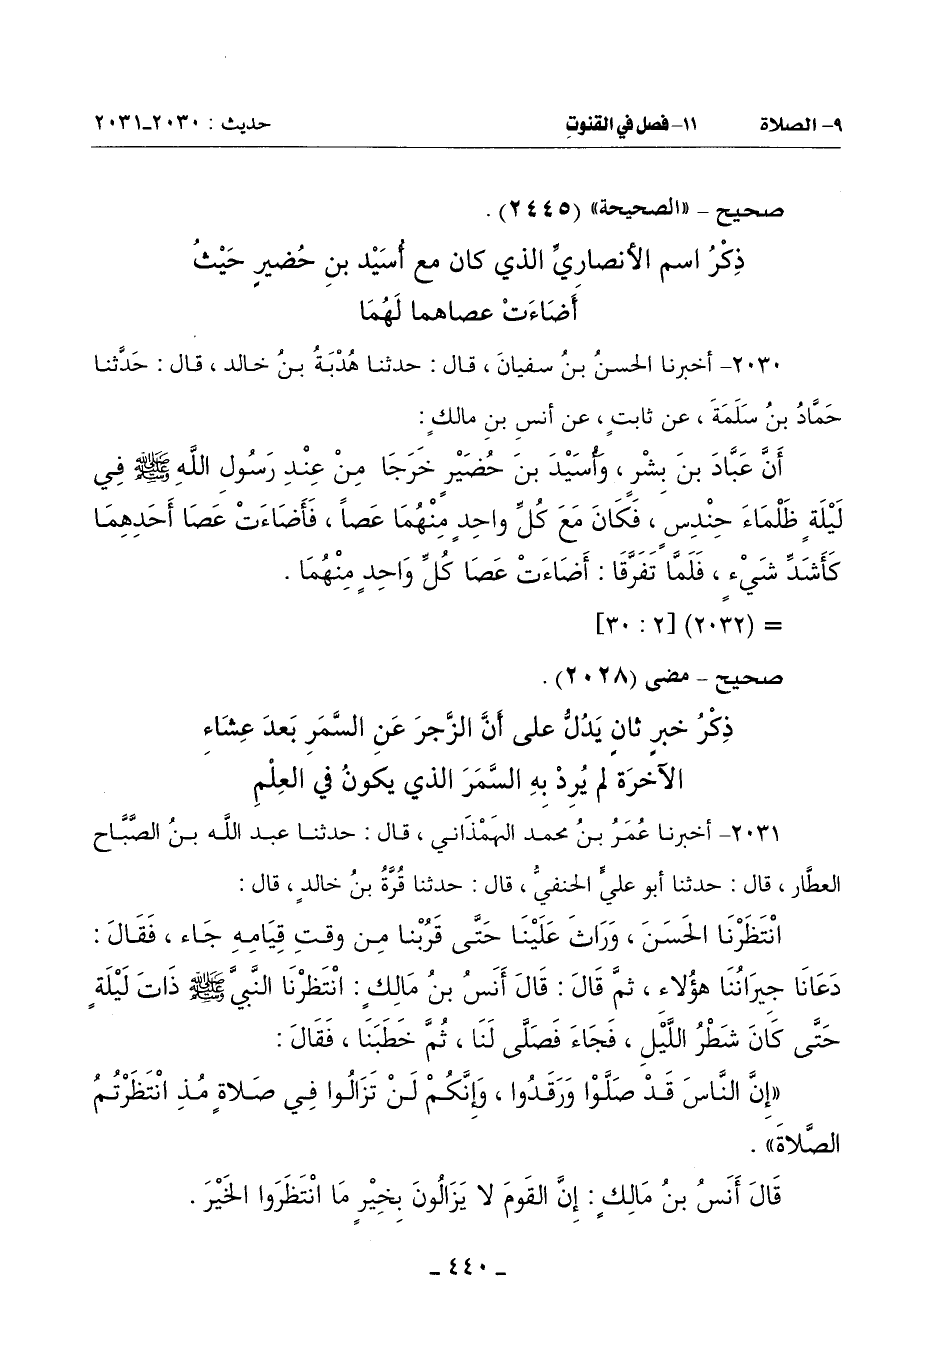 ٩- الصلاة ١١- فصل في القنوتِ حديث : ٢٠٣٠-٢٠٣١
صحيح - «الصحيحة» (٢٤٤٥) .
ذِكْرُ اسم الأنصاريِّ الذي كان مع أُسَيْد بنِ حُضيرٍ حَيْثُ
أضَاءَتْ عصاهما لَهُمَا
٢٠٣٠- أخبرنا الحسنُ بنُ سفيانَ ، قال : حدثنا هُدْبَةُ بنُ خالد ، قال : حَدَّثنا
حَمَّادُ بنُ سَلَمَةَ ، عن ثابتٍ ، عن أنسِ بنِ مالكٍ :
أَنَّ عَبَّادَ بنَ بِشْرٍ ، وَأُسَيْدَ بنَ حُضَيْرٍ خَرَجَا مِنْ عِنْدِ رَسُولِ اللَّهِ ﷺ فِي
لَيْلَةٍ ظَلْمَاءَ حِنْدِسٍ ، فَكَانَ مَعَ كُلِّ واحِدٍ مِنْهُمَا عَصاً ، فَأَضَاءَتْ عَصَا أَحَدِهِمَا
كَأَشَدِّ شَيْءٍ ، فَلَمَّا تَفَرَّقَا : أَضَاءَتْ عَصَا كُلِّ وَاحِدٍ مِنْهُمَا .
= (٢٠٣٢) [٢ : ٣٠]
صحيح - مضى (٢٠٢٨) .
ذِكْرُ خبرٍ ثانٍ يَدُلُّ على أَنَّ الزَّجرَ عَنِ السَّمَرِ بَعدَ عِشَاءِ
الآخرَة لم يُرِدْ بِهِ السَّمَرَ الذي يكونُ في العِلْمِ
٢٠٣١- أخبرنا عُمَرُ بنُ محمد الهَمْدَاني ، قال : حدثنا عبد الله بنُ الصَّبَّاح
العطَّار ، قال : حدثنا أبو عليٍّ الحنفيُّ ، قال : حدثنا قُرَّةُ بنُ خالدٍ ، قال :
انْتَظَرْنَا الحَسَنَ ، وَرَاثَ عَلَيْنَا حَتَّى قَرُبْنا مِن وقتِ قِيَامِهِ جَاء ، فَقَالَ :
دَعَانَا جيرَانُنَا هؤُلاءِ ، ثمَّ قَالَ : قَالَ أَنَسُ بنُ مَالِكٍ : انْتَظَرْنَا النَّبيَّ ﷺ ذَاتَ لَيْلَةٍ
حَتَّى كَانَ شَطْرُ اللَّيْلِ ، فَجَاءَ فَصَلَّى لَنَا ، ثُمَّ خَطَبَنَا ، فَقَالَ :
«إِنَّ النَّاسَ قَدْ صَلَّوْا وَرَقَدُوا ، وَإِنَّكُمْ لَنْ تَزَالُوا فِي صَلاةٍ مُذِ انْتَظَرْتُمُ
الصَّلاةَ» .
قَالَ أَنَسُ بنُ مَالِكٍ : إِنَّ القَومَ لا يَزَالُونَ بِخَيْرٍ مَا انْتَظَرُوا الخَيْرَ .
- ٤٤٠ -